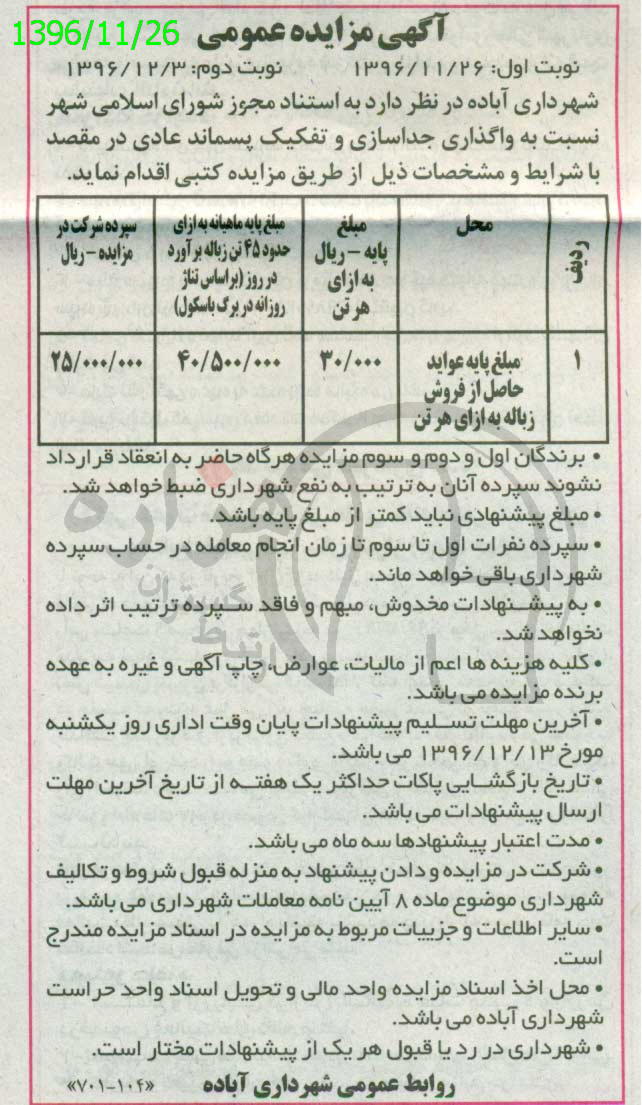 1396/11/26
آگهی مزایده عمومی
نوبت اول: ۱۳۹۶/۱۱/۲۶ نوبت دوم: ۱۳۹۶/۱۲/۳
شهرداری آباده در نظر دارد به استناد مجوز شورای اسلامی شهر
نسبت به واگذاری جداسازی و تفکیک پسماند عادی در مقصد
با شرایط و مشخصات ذیل از طریق مزایده کتبی اقدام نماید.
ردیف
محل
مبلغ
پایه – ریال
به ازای
هر تن
مبلغ پایه ماهیانه به ازای
حدود ۴۵ تن زباله برآورد
در روز (براساس تناژ
روزانه در برگ باسکول)
سپرده شرکت در
مزایده – ریال
۱
مبلغ پایه عواید
حاصل از فروش
زباله به ازای هر تن
۳۰/۰۰۰
۴۰/۵۰۰/۰۰۰
۲۵/۰۰۰/۰۰۰
• برندگان اول و دوم و سوم مزایده هرگاه حاضر به انعقاد قرارداد
نشوند سپرده آنان به ترتیب به نفع شهرداری ضبط خواهد شد.
• مبلغ پیشنهادی نباید کمتر از مبلغ پایه باشد.
• سپرده نفرات اول تا سوم تا زمان انجام معامله در حساب سپرده
شهرداری باقی خواهد ماند.
• به پیشنهادات مخدوش، مبهم و فاقد سپرده ترتیب اثر داده
نخواهد شد.
• کلیه هزینه ها اعم از مالیات، عوارض، چاپ آگهی و غیره به عهده
برنده مزایده می باشد.
• آخرین مهلت تسلیم پیشنهادات پایان وقت اداری روز یکشنبه
مورخ ۱۳۹۶/۱۲/۱۳ می باشد.
• تاریخ بازگشایی پاکات حداکثر یک هفته از تاریخ آخرین مهلت
ارسال پیشنهادات می باشد.
• مدت اعتبار پیشنهادها سه ماه می باشد.
• شرکت در مزایده و دادن پیشنهاد به منزله قبول شروط و تکالیف
شهرداری موضوع ماده ۸ آیین نامه معاملات شهرداری می باشد.
• سایر اطلاعات و جزییات مربوط به مزایده در اسناد مزایده مندرج
است.
• محل اخذ اسناد مزایده واحد مالی و تحویل اسناد واحد حراست
شهرداری آباده می باشد.
• شهرداری در رد یا قبول هر یک از پیشنهادات مختار است.
روابط عمومی شهرداری آباده «۷۰۱-۱۰۴»